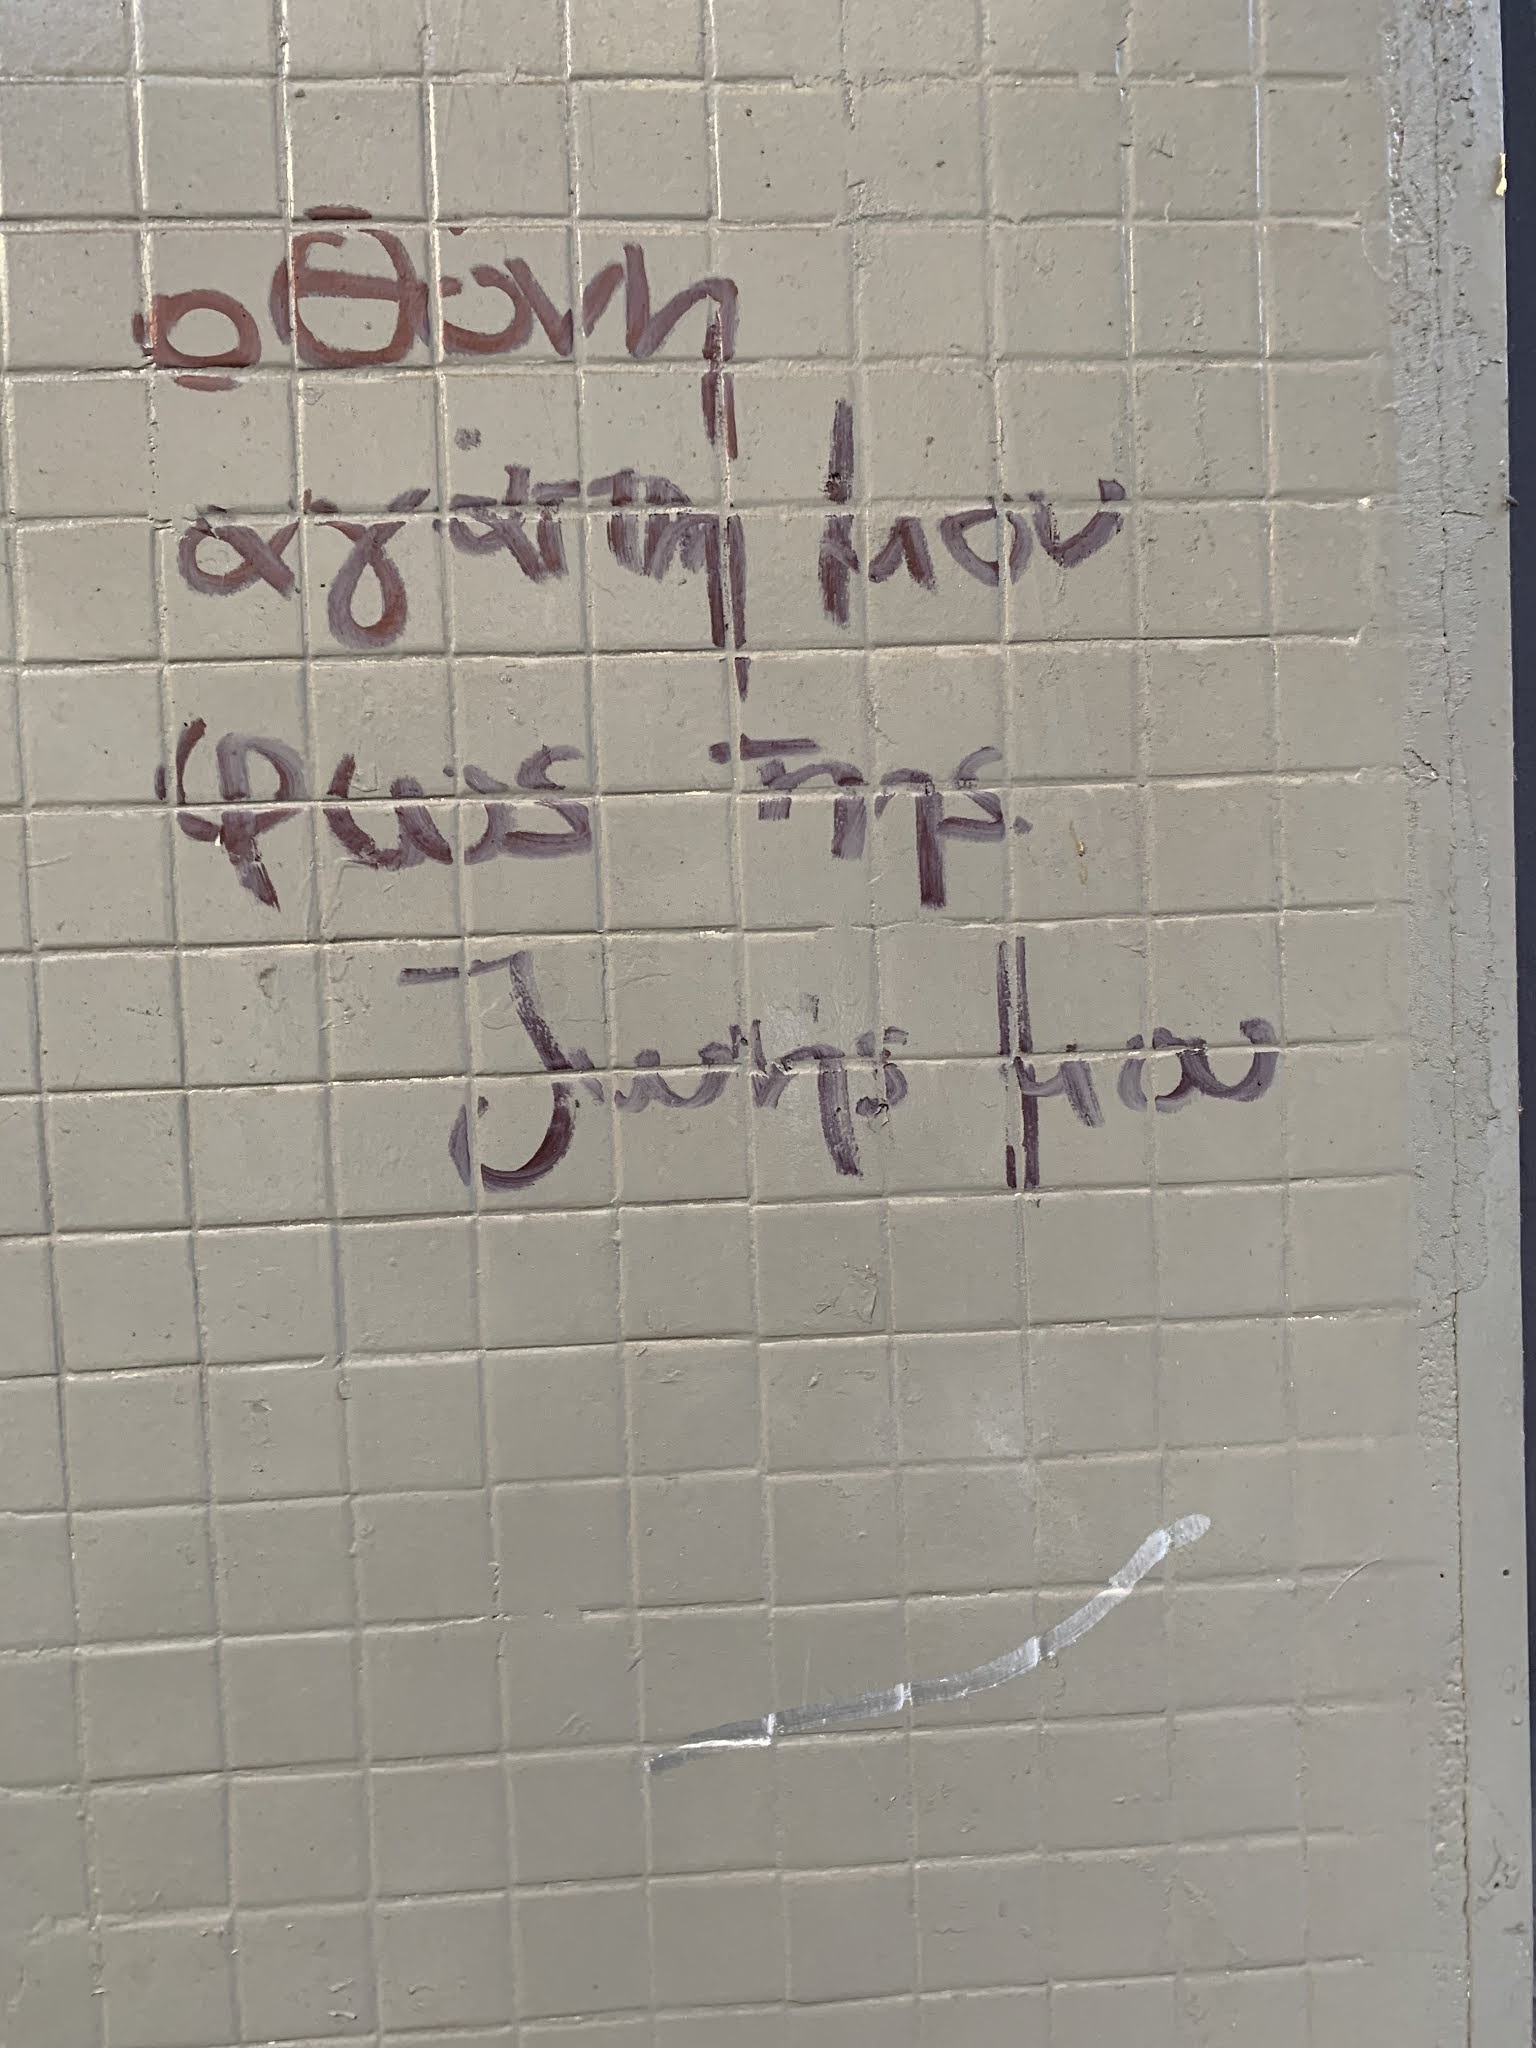 οθόνη
αγάπη μου
φως της
ζωής μου